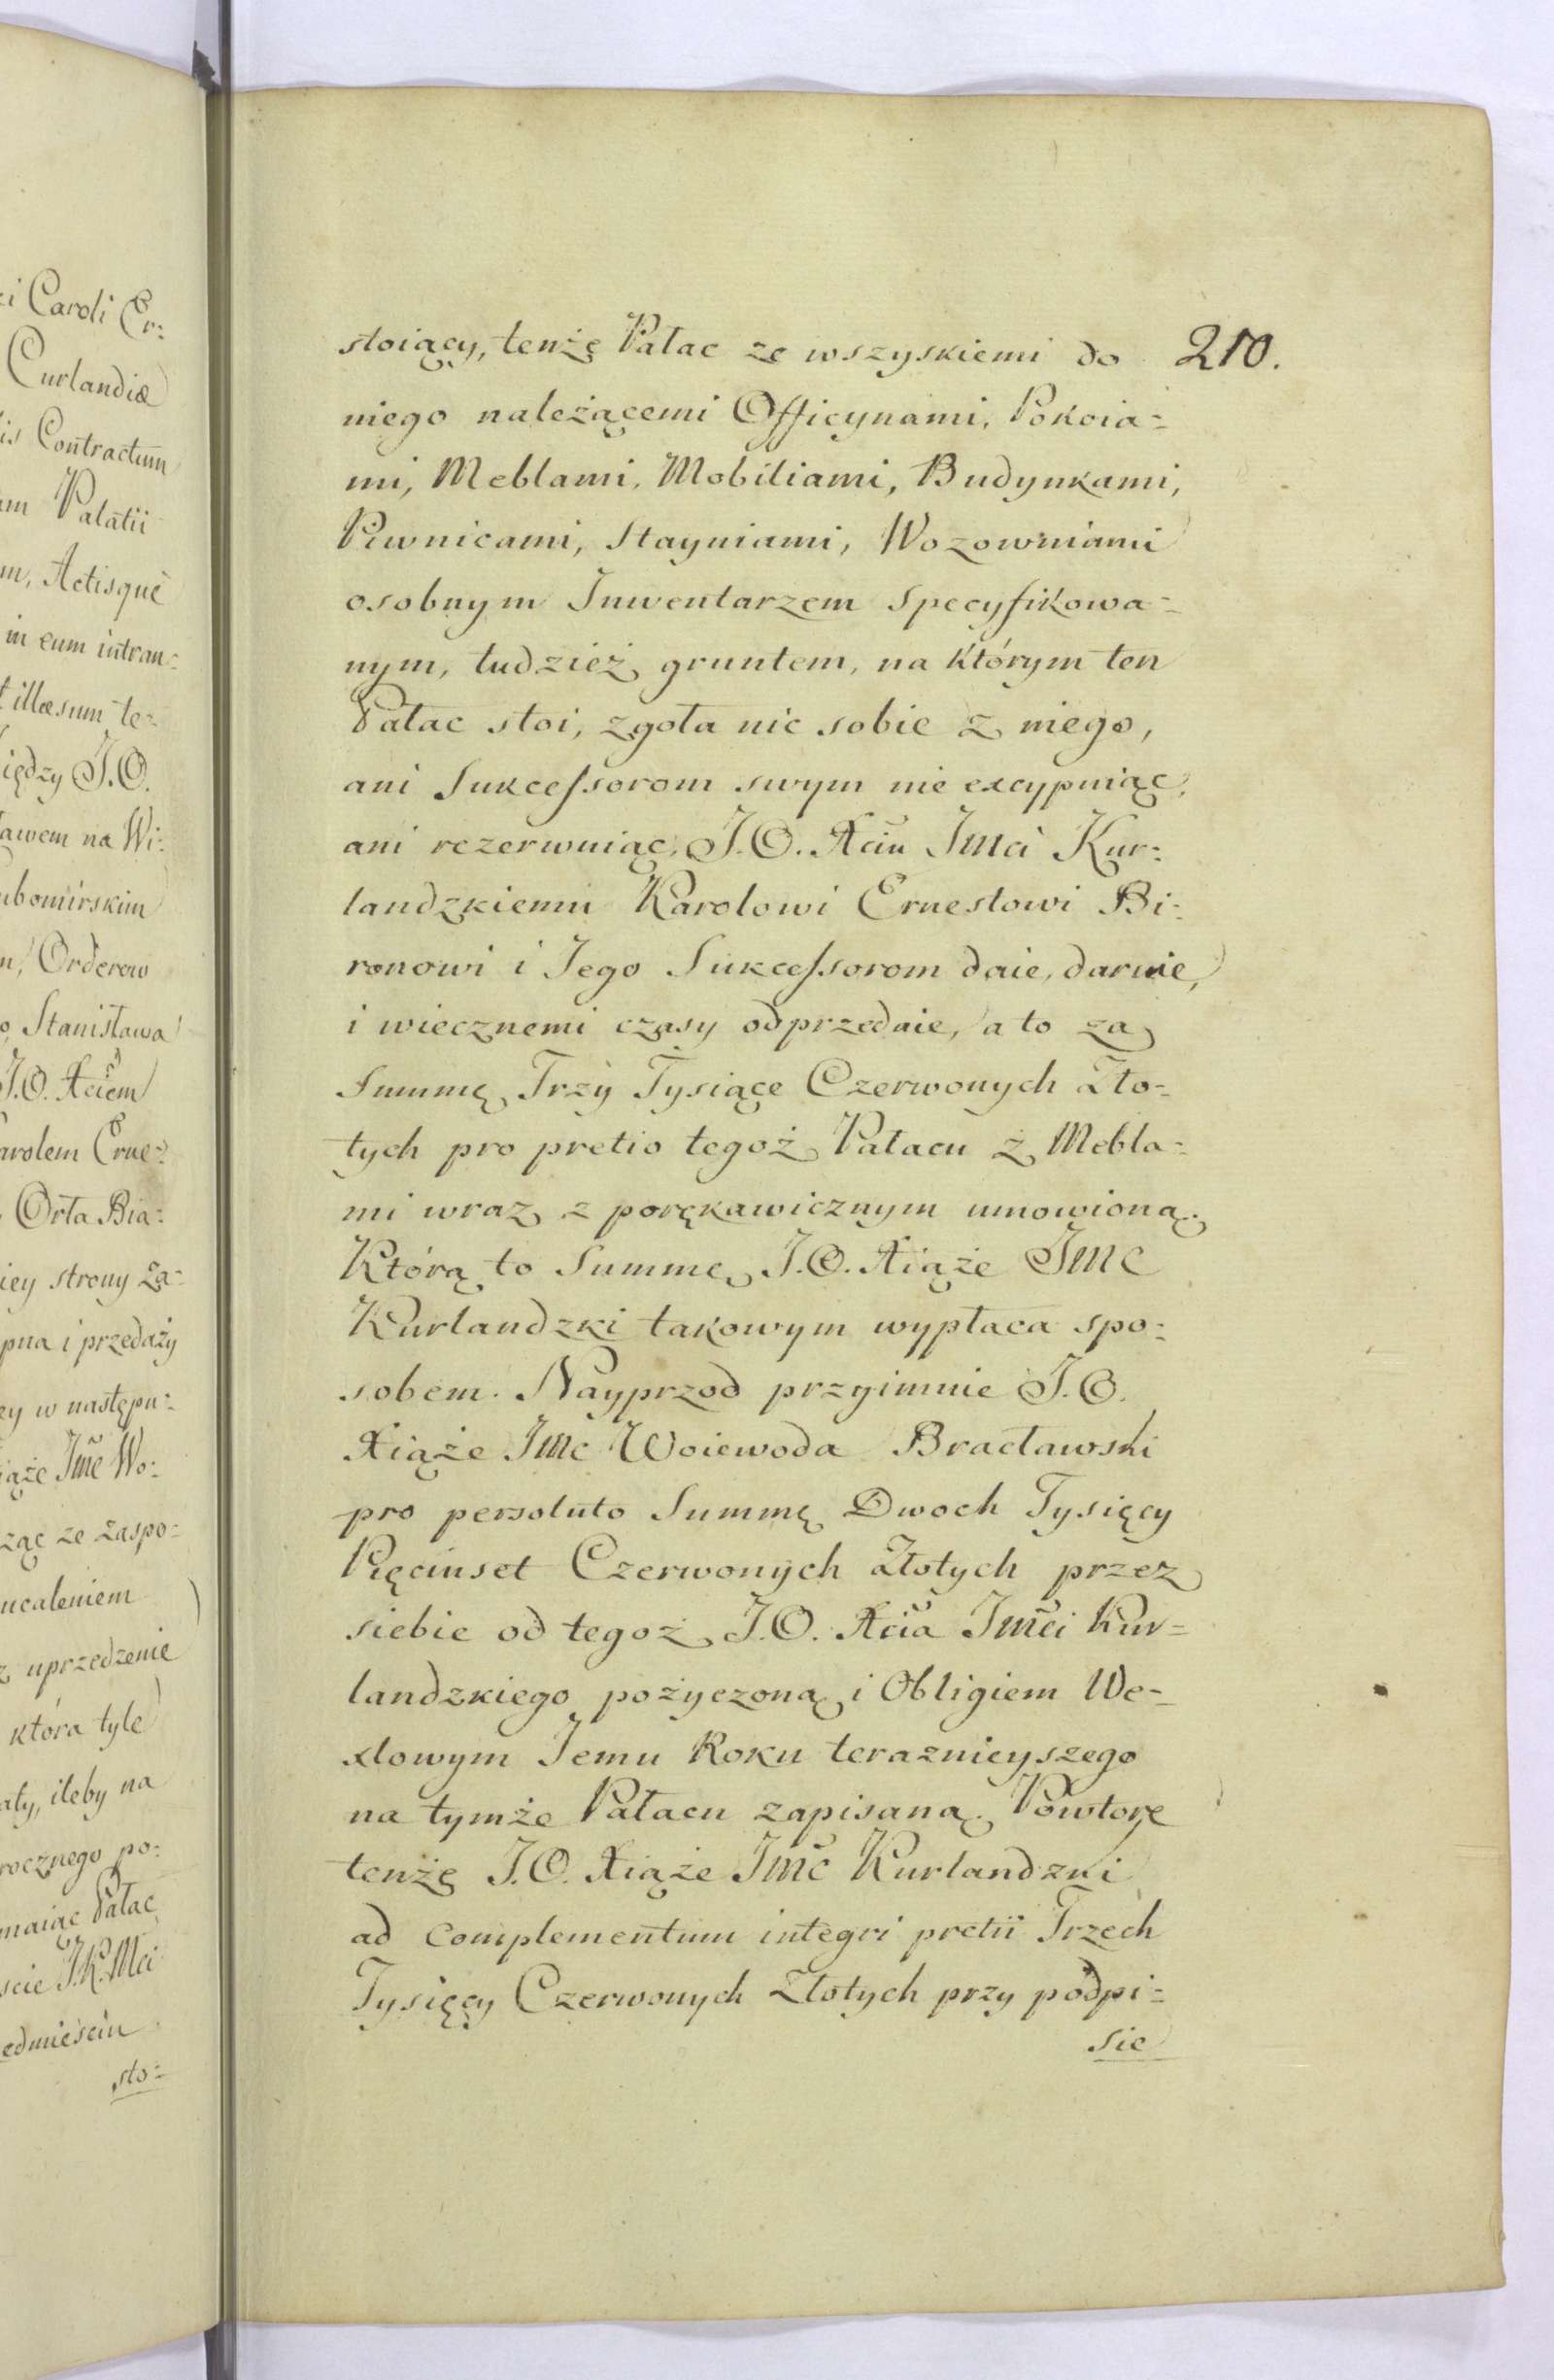 i Caroli Er:
Curlandiæ
is Contractum
um Palatii
m, Actisquè
in eum intran:
t illæsum te:
iędzy J.O.
awem na Wi:
ubomirskim
n, Orderow
o, Stanisława
J.O. Xciem
arolem Erne:
Orła Bia:
iey strony za:
pna i przedaży
ey w następu:
iąże Jmć Wo:
ząc ze zaspo:
ucaleniem
z uprzedzenie
która tyle
ały, ileby na
rocznego po:
maiąc Pałac
scie J.K.Mci
edmieściu
sto:
210.
stoiący, tenże Pałac ze wszyskiemi do
niego należącemi Officynami, Pokoia:
mi, Meblami, Mobiliami, Budynkami,
Piwnicami, Stayniami, Wozowniami
osobnym Inwentarzem specyfikowa:
nym, tudzież gruntem, na którym ten
Pałac stoi, zgoła nic sobie z niego,
ani Sukcessorom swym nie excypuiąc,
ani rezerwuiąc, J.O. Xciu Jmci Kur:
landzkiemu Karolowi Ernestowi Bi:
ronowi i Jego Sukcessorom daie, daruie,
i wiecznemi czasy odprzedaie, a to za
Summę Trzy Tysiące Czerwonych Zło:
tych pro pretio tegoż Pałacu z Mebla:
mi wraz z porękawicznym umowioną.
Którą to Summę J.O. Xiąże Jmć
Kurlandzki takowym wypłaca spo:
sobem. Nayprzod przyimuie J.O.
Xiąże Jmć Woiewoda Bracławski
pro persoluto Summę Dwoch Tysięcy
Pięciuset Czerwonych Złotych przez
siebie od tegoż J.O. Xcia Jmci Kur=
landzkiego pożyczoną i Obligiem We=
xlowym Jemu Roku teraznieyszego
na tymże Pałacu zapisaną. Powtore
tenże J.O. Xiąże Jmć Kurlandzki
ad complementum integri pretii Trzech
Tysięcy Czerwonych Złotych przy podpi:
sie